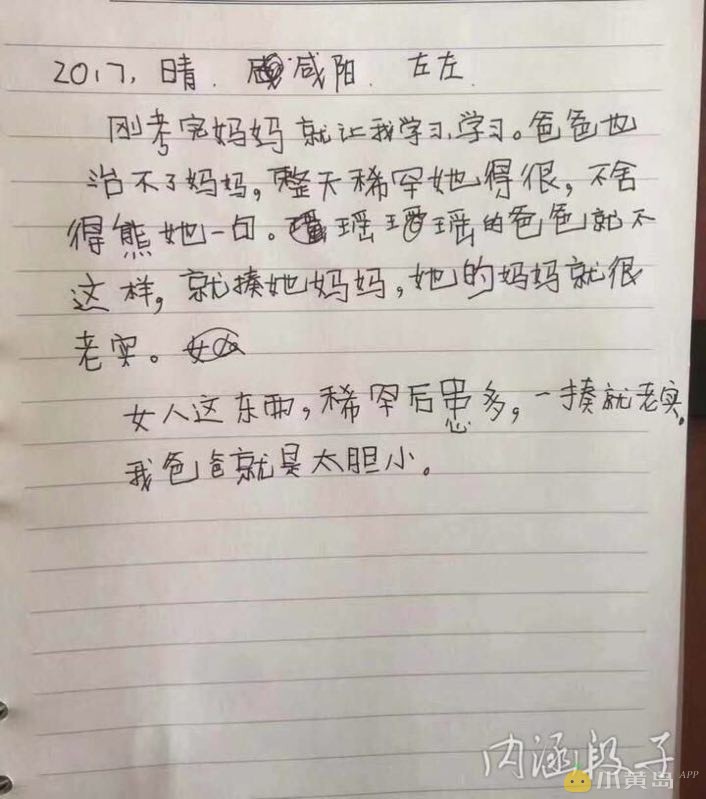 2017, 晴. 咸阳. 左左.
刚考完妈妈就让我学习,学习。爸爸也
治不了妈妈,整天稀罕她得很,不舍
得熊她一句。瑶瑶的爸爸就不
这样,就揍她妈妈,她的妈妈就很
老实。
女人这东西,稀罕后患多,一揍就老实.
我爸爸就是太胆小。
内涵段子
小黄岛APP